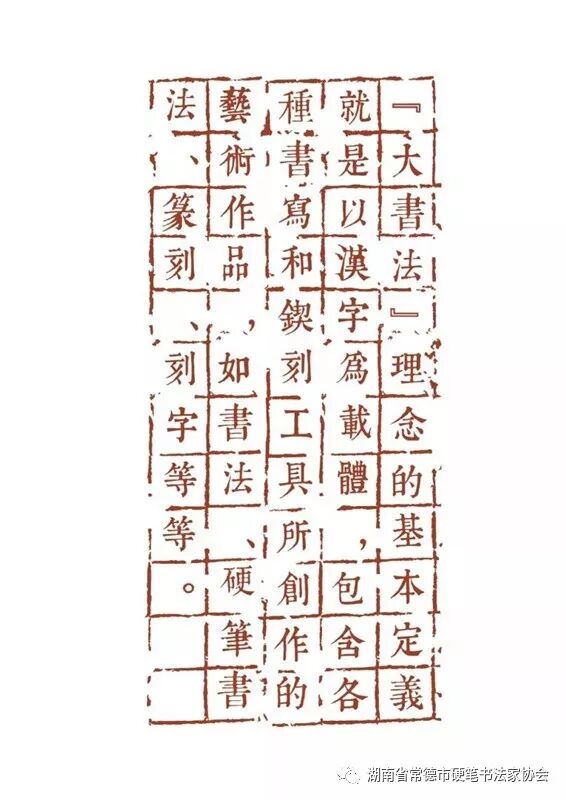 『大書法』理念的基本定義
就是以漢字爲載體，包含各
種書寫和鍥刻工具所創作的
藝術作品，如書法、硬筆書
法、篆刻、刻字等等。
湖南省常德市硬笔书法家协会